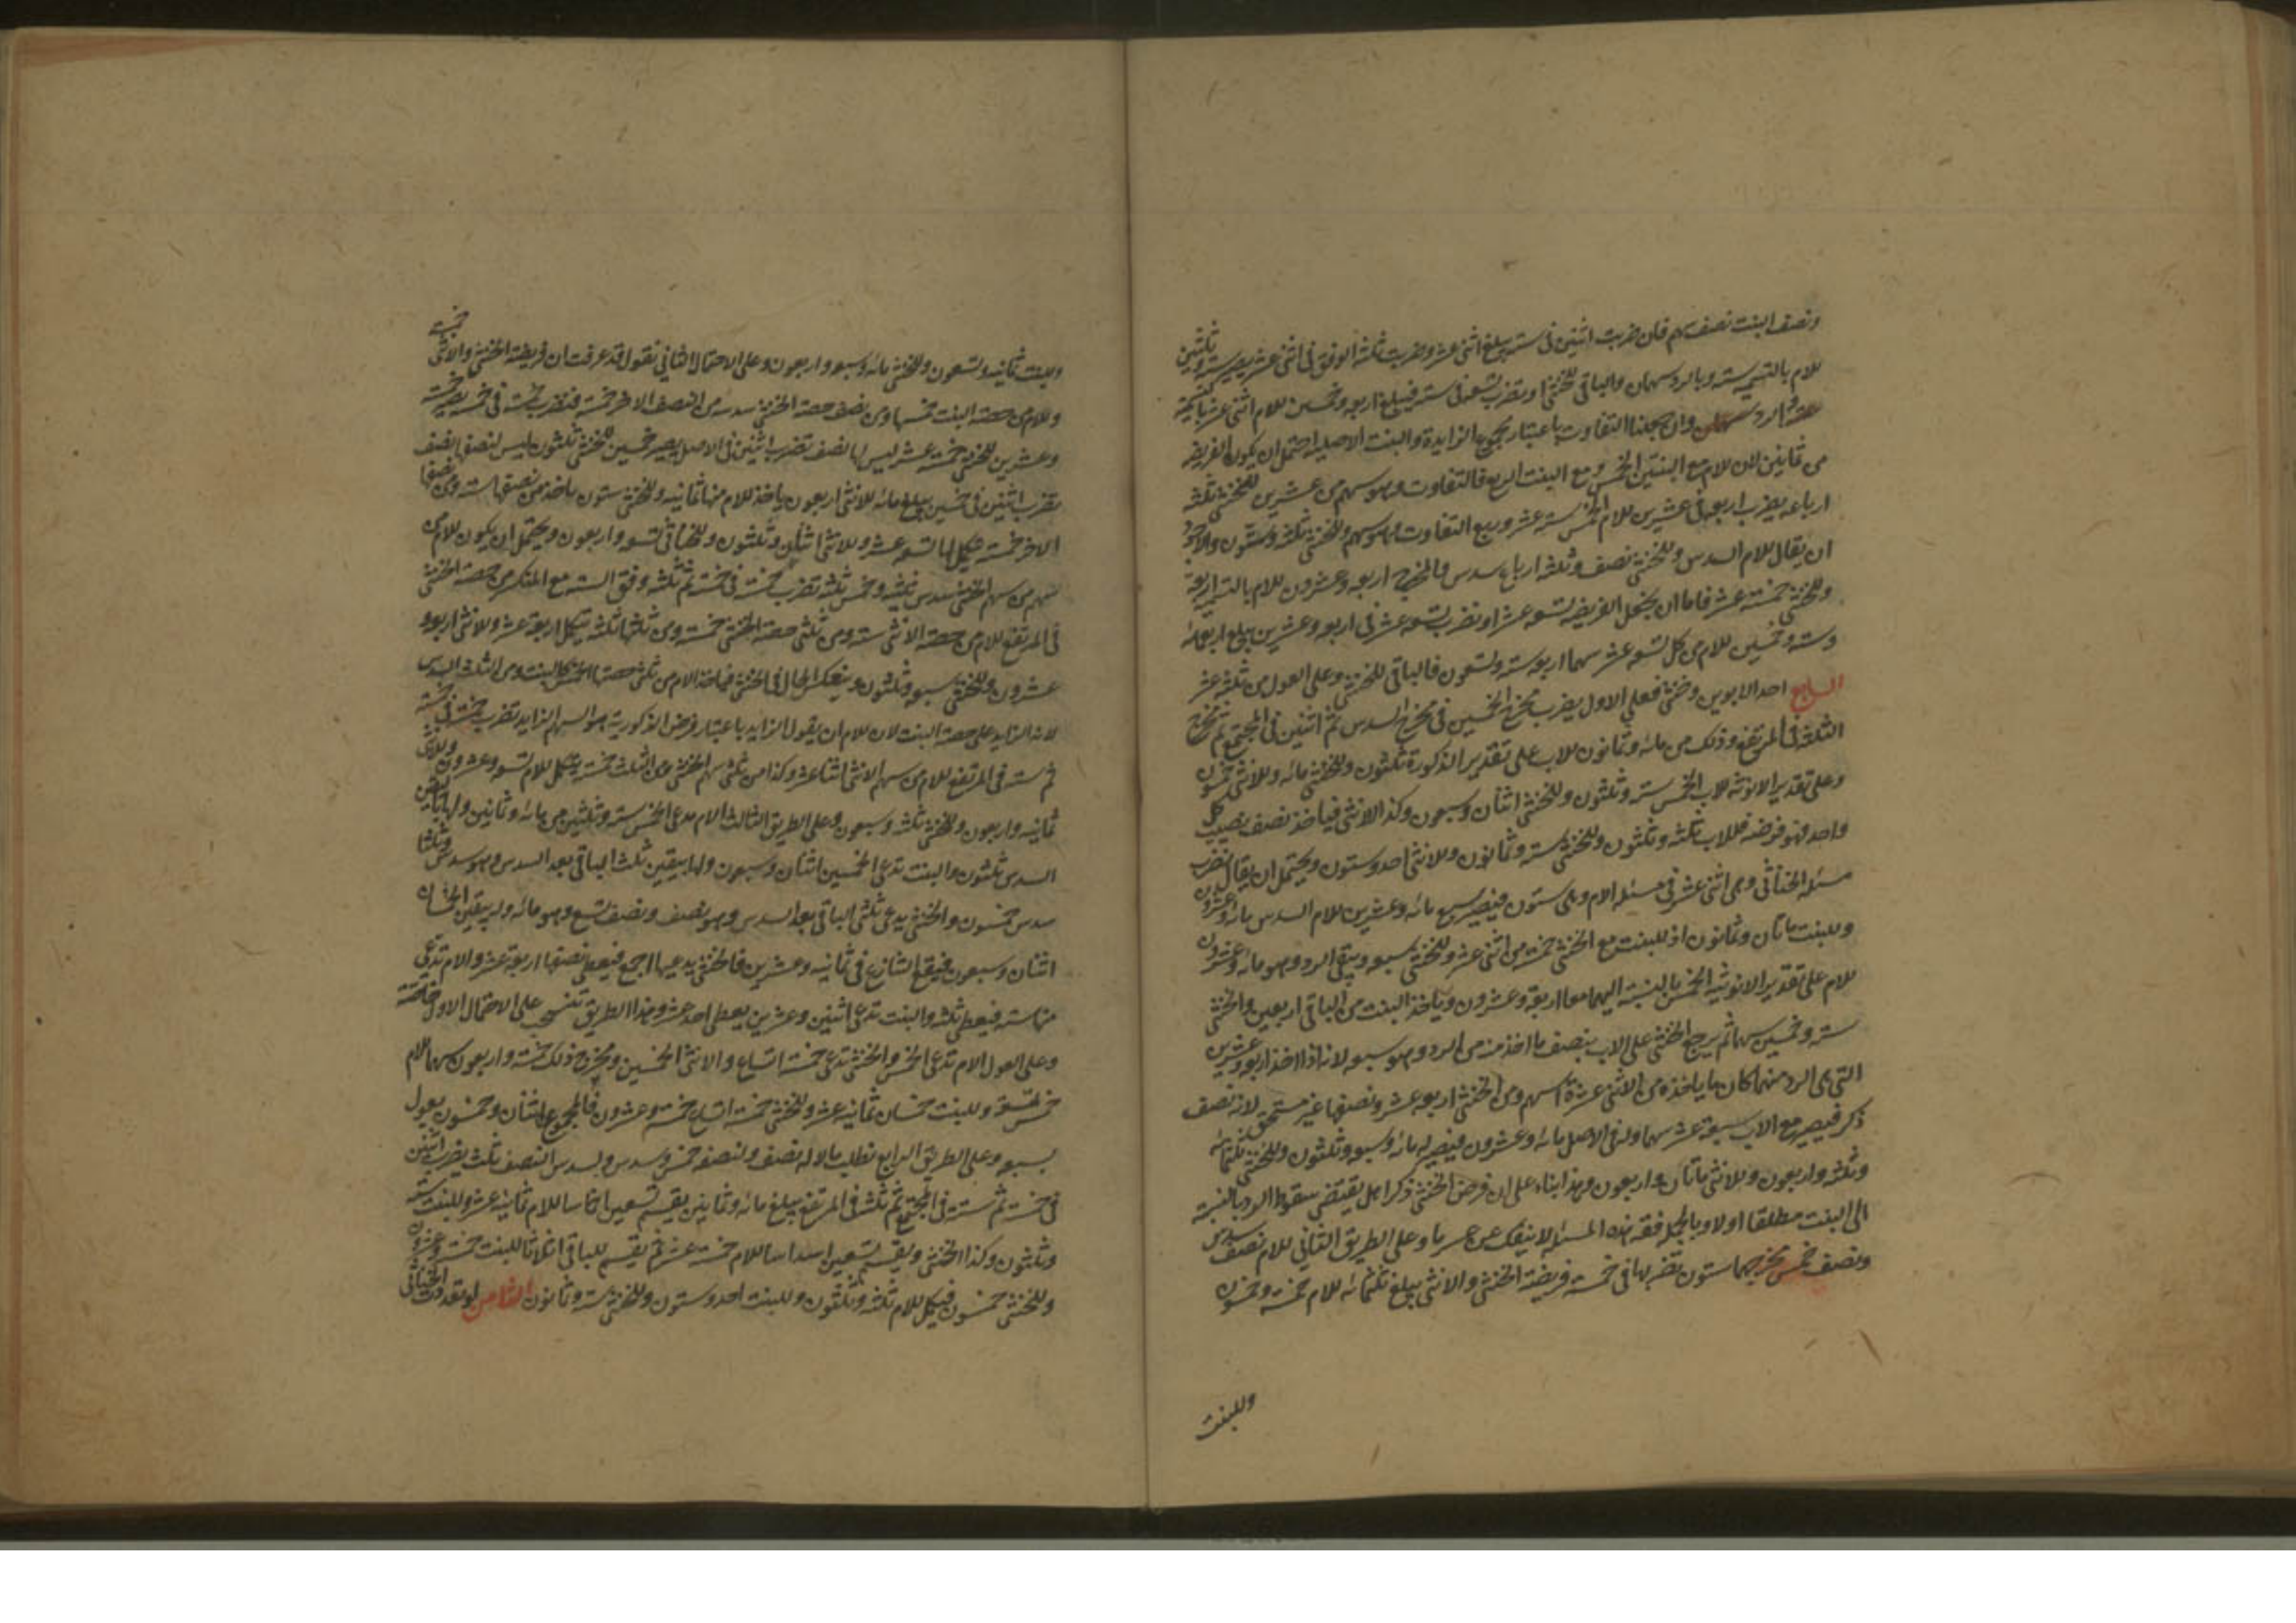 ونصف البنت نصف سهم فان ضربت اثنين في ستة يبلغ اثنى عشر وضربت ثلثة الوفق في اثنى عشر يصير ستة وثلثين
للام بالتسمية ستة وبالرد سهمان والباقي للخنثى او تضرب تسعة في ستة فيبلغ اربعة وخمسين للام اثنى عشر
الرد سهمان وان جعلنا التفاوت باعتبار مجموع الزايدة والبنت الاصلية احتمل ان يكون الفريضة
من ثمانين لان للام مع البنتين الخمس ومع البنت الربع فالتفاوت وهو سهم من عشرين للخنثى ثلثة
ارباعه يضرب اربعة في عشرين للام الخمس ستة عشر وربع التفاوت وهو سهم وللخنثى ثلثة وستون
ان يقال للام السدس وللخنثى نصف وثلثة ارباع سدس فالمخرج اربعة وعشرون للام بالتسمية اربعة
وللخنثى خمسة عشر فاما ان يجعل الفريضة تسعة عشر او تضرب تسعة عشر في اربعة وعشرين يبلغ اربعمائة
وستة وخمسين للام من كل تسعة عشر سهما اربعة ستة وتسعون فالباقي للخنثى وعلى العول من ثلثة عشر
السابع احد الابوين وخنثى فعلى الاول يضرب مخرج الخمسين في مخرج السدس ثم اثنين في المجتمع ثم مخرج
الثلثة في المرتفع وذلك من مائة وثمانون للاب على تقدير الذكورة ثلثون وللخنثى مائة وللانثى خمسون
وعلى تقدير الانوثة للاب الخمس ستة وثلثون وللخنثى اثنان وسبعون وكذا الانثى فياخذ نصف نصيب كل
واحد فهو فرضه فللاب ثلثة وثلثون وللخنثى ستة وثمانون وللانثى احد وستون ويحتمل ان يقال يضرب
مسئلة الخناثى وهى اثنى عشر في مسئلة الام وهى ستون فيصير سبع مائة وعشرين للام السدس مائة وعشرون
وللبنت مائتان وثمانون اذ للبنت مع الخنثى خمسة من اثنى عشر وللخنثى سبعة ويبقى الرد وهو مائة وعشرون
للام على تقدير الانوثية الخمس بالنسبة اليهما معا اربعة وعشرون وياخذ البنت من الباقي اربعين والخنثى
ستة وخمسين سهما ثم يرجع الخنثى على الاب بنصف ما اخذ منه من الرد وهو سبعة لانه اذا اخذ اربعة وعشرين
التي هى الرد منهما كان ما ياخذه من الانثى عشرة اسهم ومن الخنثى اربعة عشر ونصفها غير مستحق لانه نصف
ذكر فيصير مع الاب سبعة عشر سهما وله في الاصل مائة وعشرون فيصير له مائة وسبعة وثلثون وللخنثى ثلثمائة
وثلثة واربعون وللانثى مائتان واربعون وهذا بناء على ان فرض الخنثى ذكرا هل يقتضي سقوط الرد بالنسبة
الى البنت مطلقا اولا وبالجملة فقه هذه المسئلة لا ينفك عن عسر ما وعلى الطريق الثاني للام نصف سدس
ونصف خمس مخرجهما ستون تضربها في خمسة فريضة الخنثى والانثى يبلغ ثلثمائة للام خمسة وخمسون
وللبنت
وللبنت ثمانية وتسعون وللخنثى مائة وسبعة واربعون وعلى الاحتمال الثاني نقول قد عرفت ان فريضة الخنثى والانثى خمسة
وللام من حصة البنت خمسها ومن نصف حصة الخنثى سدسه ومن النصف الاخر خمسة فتضرب خمسة في خمسة يصير خمسة
وعشرين للخنثى خمسة عشر ليس لها نصف تضرب اثنين في الاصل يصير خمسين للخنثى ثلثون وليس لنصفها نصف
تضرب اثنين في خمسين يبلغ مائة للانثى اربعون ياخذ للام منها ثمانية وللخنثى ستون ياخذ من نصفها ستة ومن نصفها
الاخر خمسة فيكمل لها تسعة عشر وللانثى اثنان وثلثون وللخناثى تسعة واربعون ويحتمل ان يكون للام من
سهم من سهم الخنثى سدس ثلثيه وخمس ثلثه تضرب خمسة في خمسة ثم ثلثة وفق الستة مع المنكسر من حصة الخنثى
في المرتفع للام من حصة الانثى ستة ومن ثلثي حصة الخنثى خمسة ومن ثلثها ثلثة يكمل اربعة عشر وللانثى اربعة و
عشرون وللخنثى سبعة وثلثون وينعكس الحال في الخنثى فياخذ الام من ثلثي حصتها الخمس كالبنت ومن الثلث السدس
لانه الزايد على حصة البنت لان للام ان يقول الزايد باعتبار فرض الذكورية هو السهم الزايد تضرب خمسة في خمسة
ثم ستة في المرتفع للام من سهم الانثى اثنا عشر وكذا من ثلثي سهم الخنثى ومن الثلث خمسة يكمل للام تسعة وعشرون وللانثى
ثمانية واربعون وللخنثى ثلثة وسبعون وعلى الطريق الثالث الام تدعى الخمس ستة وثلثين من مائة وثمانين ولها بيقين
السدس ثلثون والبنت تدعى الخمسين اثنان وسبعون ولها بيقين ثلث الباقي بعد السدس وهو سدس وثلثا
سدس خمسون والخنثى يدعى ثلثي الباقي بعد السدس وهو نصف ونصف تسع وهو مائة وله بيقين الخمسان
اثنان وسبعون فيقع التنازع في ثمانية وعشرين فالخنثى يدعيها اجمع فيعطى نصفها اربعة عشر والام تدعى
منها ستة فيعطى ثلثة والبنت تدعى اثنين وعشرين يعطى احد عشر وهذا الطريق تنسحب على الاحتمال الاول خاصة
وعلى العول الام تدعى الخمس والخنثى تدعى خمسة اتساع والانثى الخمسين ومخرج ذلك خمسة واربعون سهما للام
خمس تسعة وللبنت خمسان ثمانية عشر وللخنثى خمسة اتساع خمسة وعشرون فالمجموع اثنان وخمسون يعول
بسبعة وعلى الطريق الرابع نطلب مالا له نصف ولنصفه خمس وسدس ولسدس النصف ثلث يضرب اثنين
في خمسة ثم ستة في المجتمع ثم ثلثة في المرتفع يبلغ مائة وثمانين يقسم تسعين اخماسا للام ثمانية عشر وللبنت ستة
وثلثون وكذا الخنثى ويقسم تسعين اسداسا للام خمسة عشر ثم يقسم الباقي اثلاثا للبنت خمسة وعشرون
وللخنثى خمسون فيكمل للام ثلثة وثلثون وللبنت احد وستون وللخنثى ستة وثمانون الثامن لو تعددت الخناثى